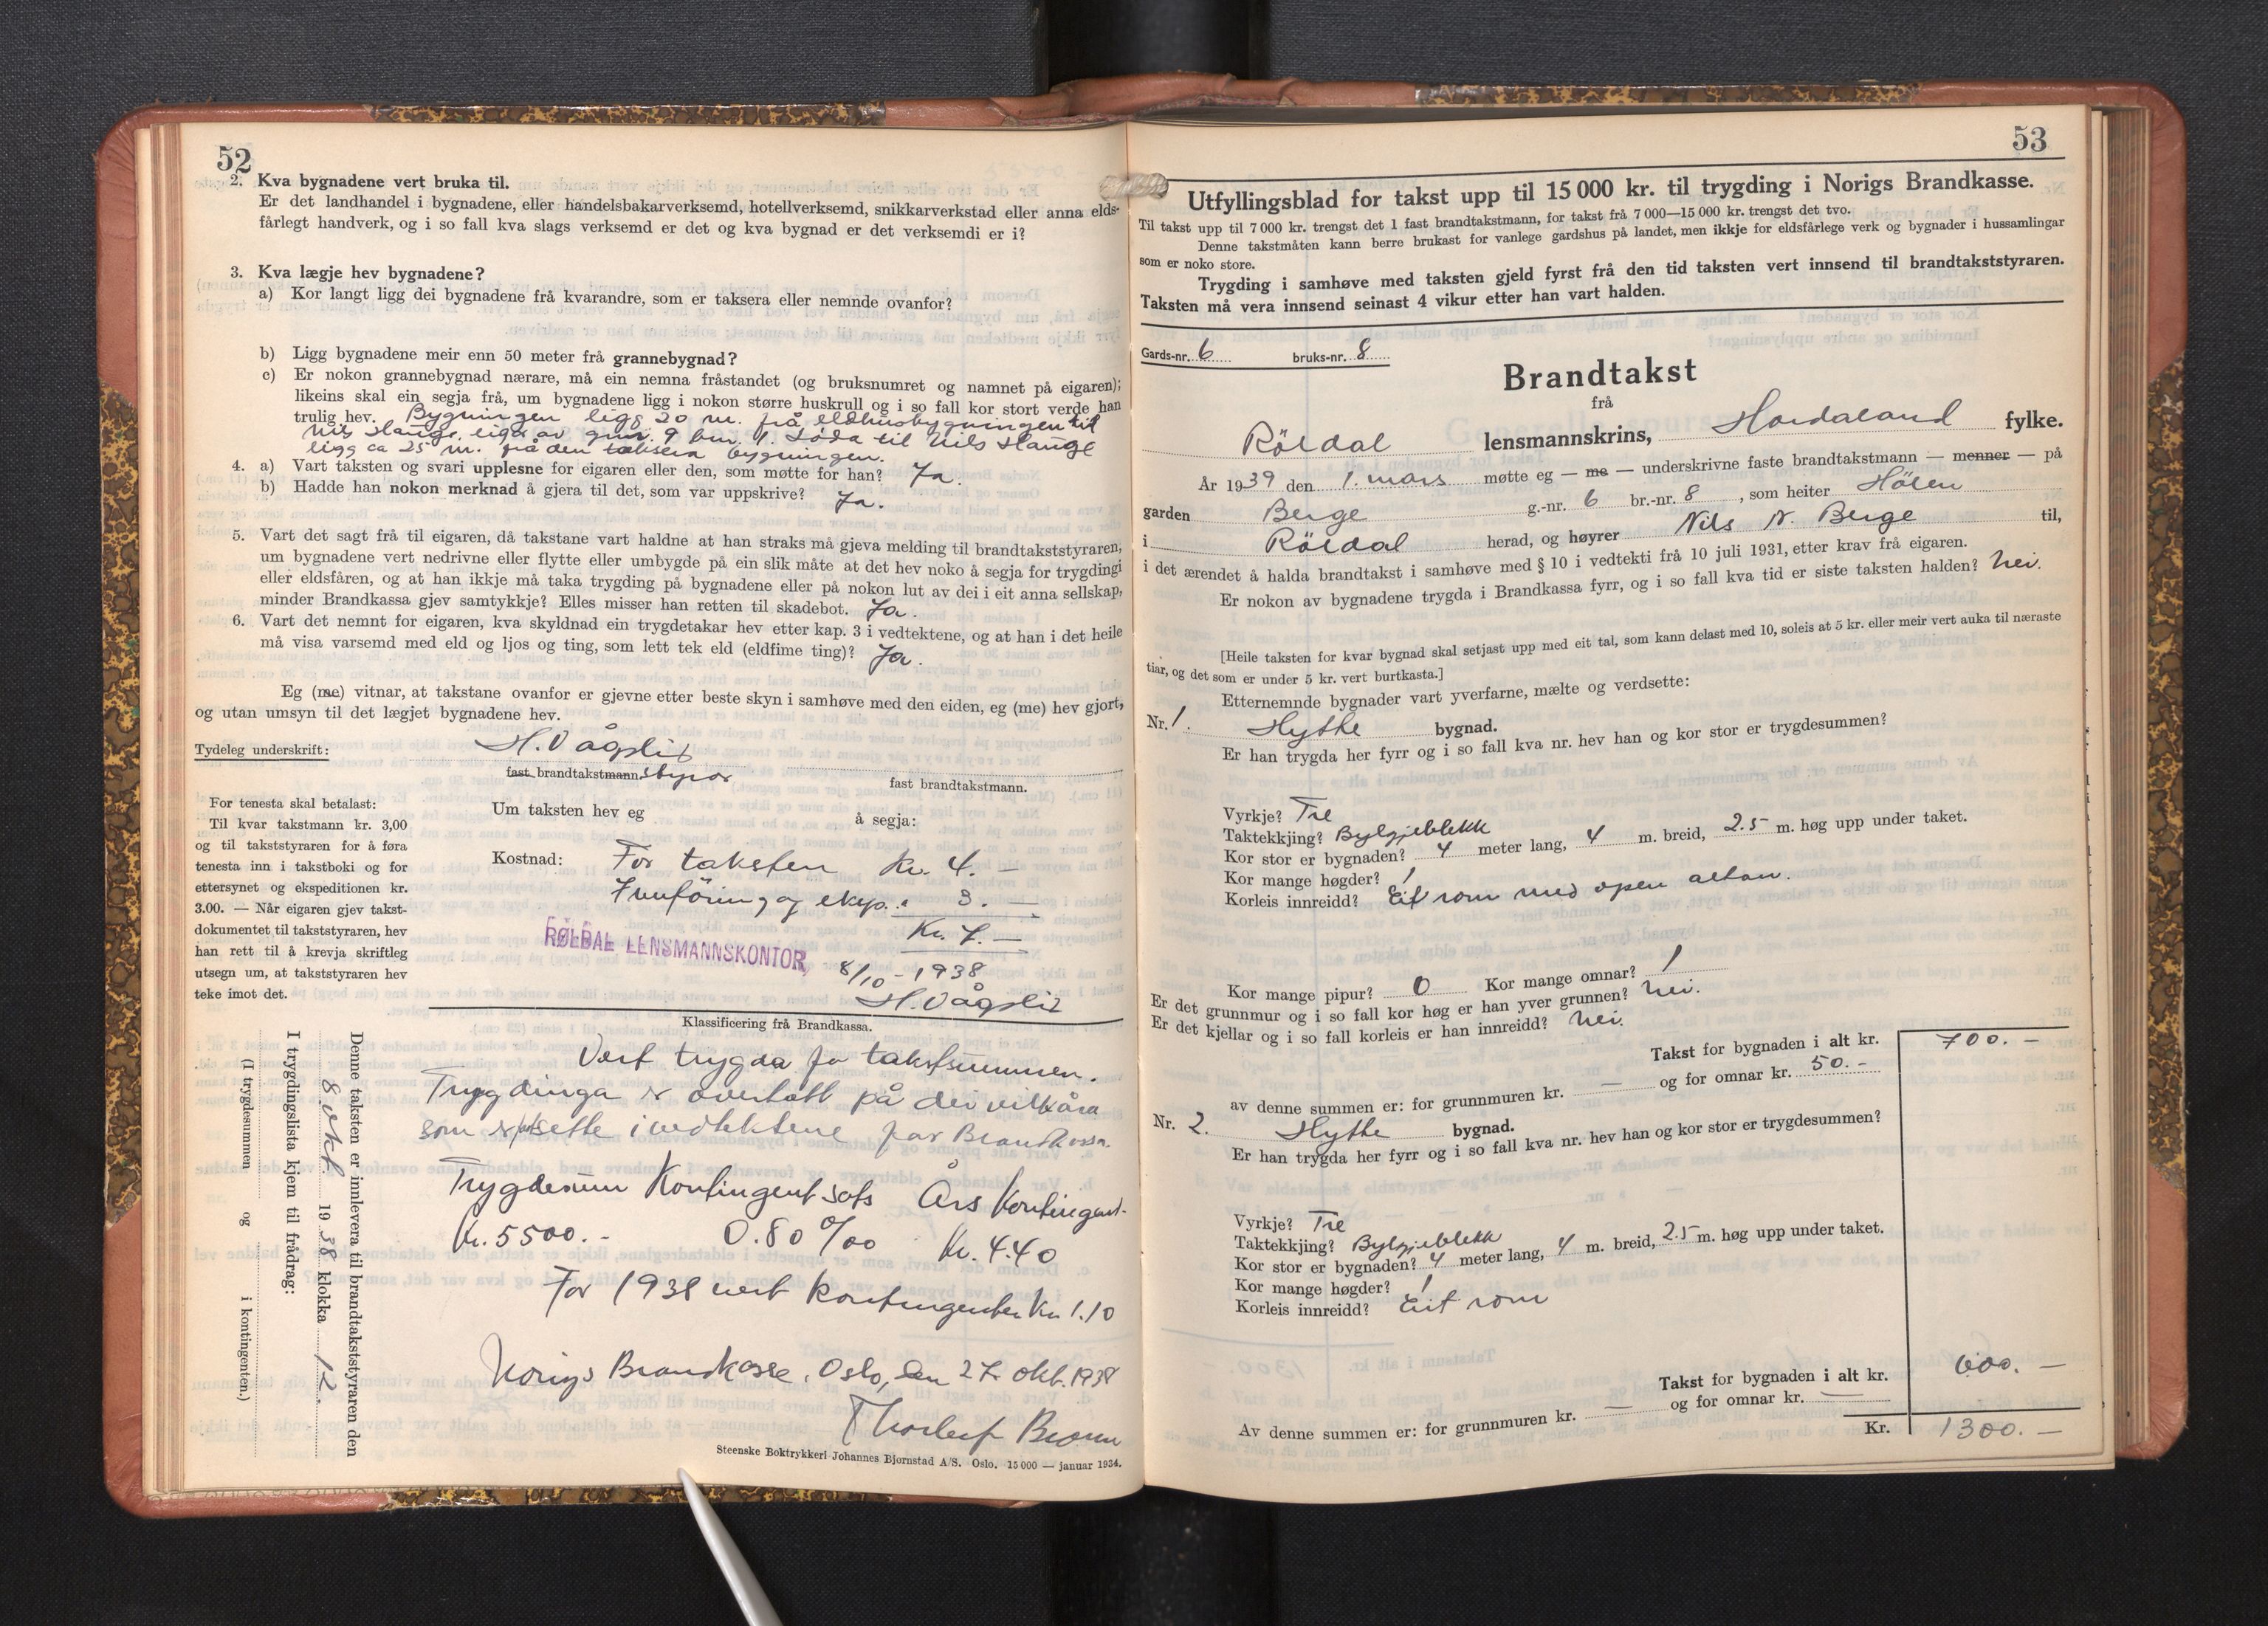 52
2. Kva bygnadene vert bruka til.
Er det landhandel i bygnadene, eller handelsbakarverksemd, hotellverksemd, snikkarverkstad eller anna elds-
fårlegt handverk, og i so fall kva slags verksemd er det og kva bygnad er det verksemdi er i?
3. Kva lægje hev bygnadene?
a) Kor langt ligg dei bygnadene frå kvarandre, som er taksera eller nemnde ovanfor?
b) Ligg bygnadene meir enn 50 meter frå grannebygnad?
c) Er nokon grannebygnad nærare, må ein nemna fråstandet (og bruksnumret og namnet på eigaren);
likeins skal ein segja frå, um bygnadene ligg i nokon større huskrull og i so fall kor stort verde han
trulig hev. Bygningen ligg 20 m. frå eldhusbygningen til
Nils Hauge, eigar av gnr. 9 bnr. 1. Löda til Nils Hauge
ligg ca 25 m. frå den taksera bygningen.
4. a) Vart taksten og svari upplesne for eigaren eller den, som møtte for han? Ja.
b) Hadde han nokon merknad å gjera til det, som var uppskrive? Ja.
5. Vart det sagt frå til eigaren, då takstane vart haldne at han straks må gjeva melding til brandtakststyraren,
um bygnadene vert nedrivne eller flytte eller umbygde på ein slik måte at det hev noko å segja for trygdingi
eller eldsfåren, og at han ikkje må taka trygding på bygnadene eller på nokon lut av dei i eit anna sellskap,
minder Brandkassa gjev samtykkje? Elles misser han retten til skadebot. Ja.
6. Vart det nemnt for eigaren, kva skyldnad ein trygdetakar hev etter kap. 3 i vedtektene, og at han i det heile
må visa varsemd med eld og ljos og ting, som lett tek eld (eldfime ting)? Ja.
Eg (me) vitnar, at takstane ovanfor er gjevne etter beste skyn i samhøve med den eiden, eg (me) hev gjort,
og utan umsyn til det lægjet bygnadene hev.
Tydeleg underskrift: H. Vågslid
fast brandtakstmann. styrar
fast brandtakstmann.
For tenesta skal betalast:
Til kvar takstmann kr. 3,00
og til takststyraren for å føra
tenesta inn i takstboki og for
ettersynet og ekspeditionen kr.
3.00. — Når eigaren gjev takst-
dokumentet til takststyraren, hev
han rett til å krevja skriftleg
utsegn um, at takststyraren hev
teke imot det.
Um taksten hev eg å segja:
Kostnad: For taksten Kr. 4. —
Innföring og eksp. " 3. —
Kr. 7. —
RØLDAL LENSMANNSKONTOR,
8/10 - 1938
H. Vågslid
Klassificering frå Brandkassa.
Vert trygda for takstsummen.
Trygdinga er overtatt på dei vilkåra
som er sette i vedtektene for Brandkassa.
Trygdesum Kontingentsats Års kontingent.
Kr. 5500. - 0.80 ‰ Kr. 4.40
For 1938 vert kontingenten Kr 1.10
Norigs Brandkasse, Oslo, den 27 okt. 1938
Steenske Boktrykkeri Johannes Bjørnstad A/S. Oslo. 15 000 — januar 1934.
Denne taksten er innlevera til brandtakststyraren den
8. okt. 1938 klokka 12.
I trygdingslista kjem til frådrag:
(I trygdesummen og i kontingenten.)
53
Utfyllingsblad for takst upp til 15 000 kr. til trygding i Norigs Brandkasse.
Til takst upp til 7 000 kr. trengst det 1 fast brandtakstmann, for takst frå 7 000—15 000 kr. trengst det tvo.
Denne takstmåten kann berre brukast for vanlege gardshus på landet, men ikkje for eldsfårlege verk og bygnader i hussamlingar
som er noko store.
Trygding i samhøve med taksten gjeld fyrst frå den tid taksten vert innsend til brandtakststyraren.
Taksten må vera innsend seinast 4 vikur etter han vart halden.
Gards-nr. 6 bruks-nr. 8
Brandtakst
frå
Röldal lensmannskrins, Hordaland fylke.
År 1939 den 1. mars møtte eg — me — underskrivne faste brandtakstmann — menner — på
garden Berge g.-nr. 6 br.-nr. 8, som heiter Hölen
i Röldal herad, og høyrer Nils N. Berge til,
i det ærendet å halda brandtakst i samhøve med § 10 i vedtekti frå 10 juli 1931, etter krav frå eigaren.
Er nokon av bygnadene trygda i Brandkassa fyrr, og i so fall kva tid er siste taksten halden? Nei.
[Heile taksten for kvar bygnad skal setjast upp med eit tal, som kann delast med 10, soleis at 5 kr. eller meir vert auka til næraste
tiar, og det som er under 5 kr. vert burtkasta.]
Etternemnde bygnader vart yverfarne, mælte og verdsette:
Nr. 1. Hytte bygnad.
Er han trygda her fyrr og i so fall kva nr. hev han og kor stor er trygdesummen?
Vyrkje? Tre
Taktekkjing? Bylgjeblekk
Kor stor er bygnaden? 4 meter lang, 4 m. breid, 2.5 m. høg upp under taket.
Kor mange høgder? 1
Korleis innreidd? Eit rom med open altan.
Kor mange pipur? 0 Kor mange omnar? 1
Er det grunnmur og i so fall kor høg er han yver grunnen? Nei.
Er det kjellar og i so fall korleis er han innreidd? Nei.
Takst for bygnaden i alt kr. 700. —
av denne summen er: for grunnmuren kr. — og for omnar kr. 50. —
Nr. 2. Hytte bygnad.
Er han trygda her fyrr og i so fall kva nr. hev han og kor stor er trygdesummen?
Vyrkje? Tre
Taktekkjing? Bylgjeblekk
Kor stor er bygnaden? 4 meter lang, 4 m. breid, 2.5 m. høg upp under taket.
Kor mange høgder? 1
Korleis innreidd? Eit rom
Takst for bygnaden i alt kr. 600. —
Av denne summen er: for grunnmuren kr. — og for omnar kr. —
Kr. 1300. —